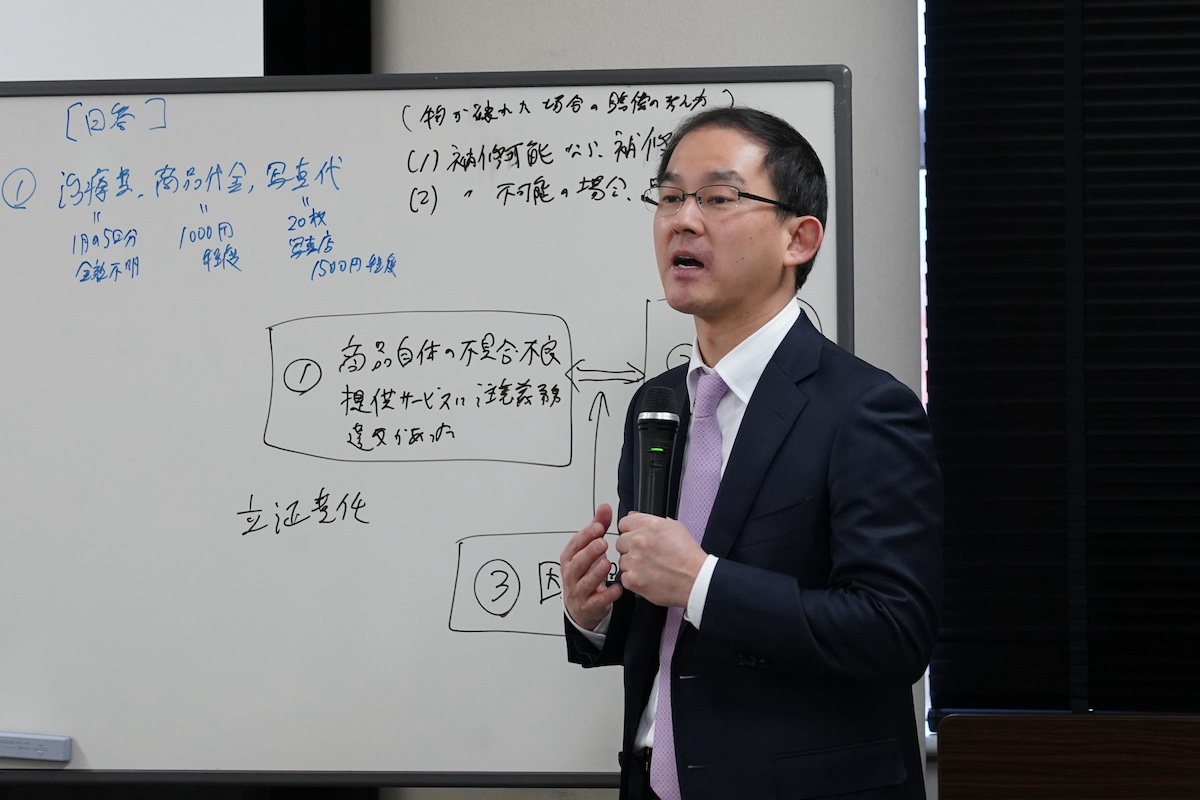 [回答]
① 治療費、商品代金、写真代
〃 〃 〃
1月95日分 1000円 20枚
金額不明 程度 写真店
1500円程度
(物が破れた場合の賠償の考え方)
(1) 補修可能なら、補修
(2) 〃 不可能の場合、
① 商品自体の不具合・不良
提供サービスに注意義務
違反があった
立证責任
③ 因